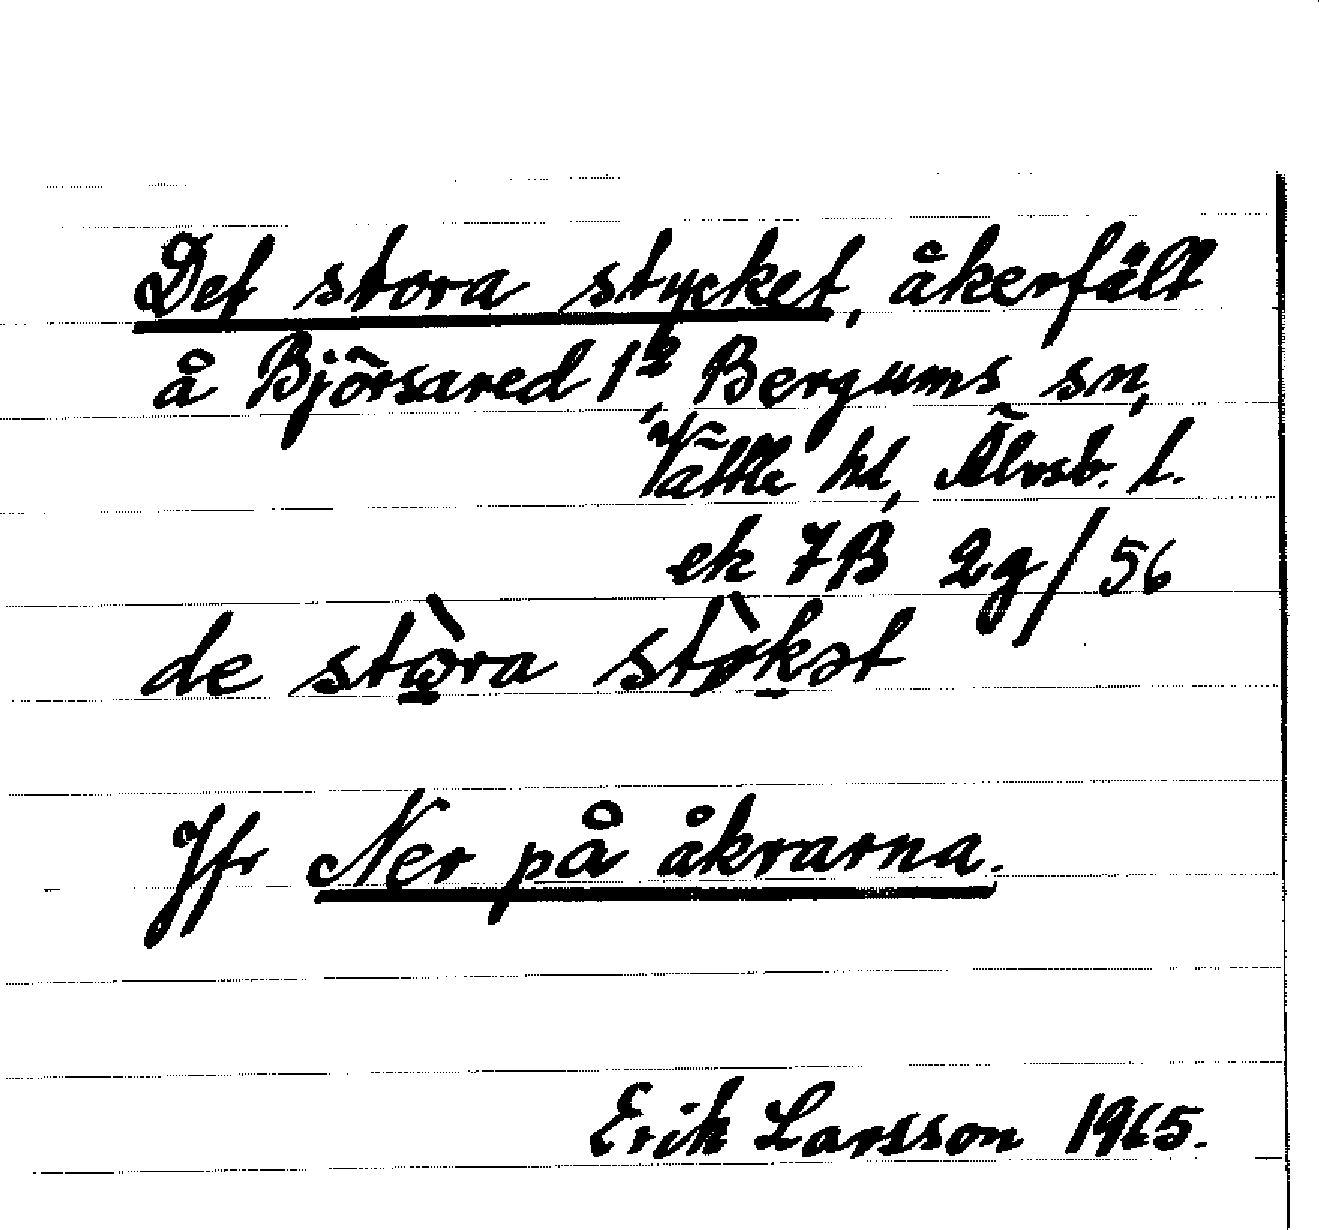 Det stora stycket, åkerfält
å Björsared 1², Bergums sn,
Vättle hd, Älvsb. l.
ek 7B 2g/56
de stora støkət
Jfr Ner på åkrarna.
Erik Larsson 1965.